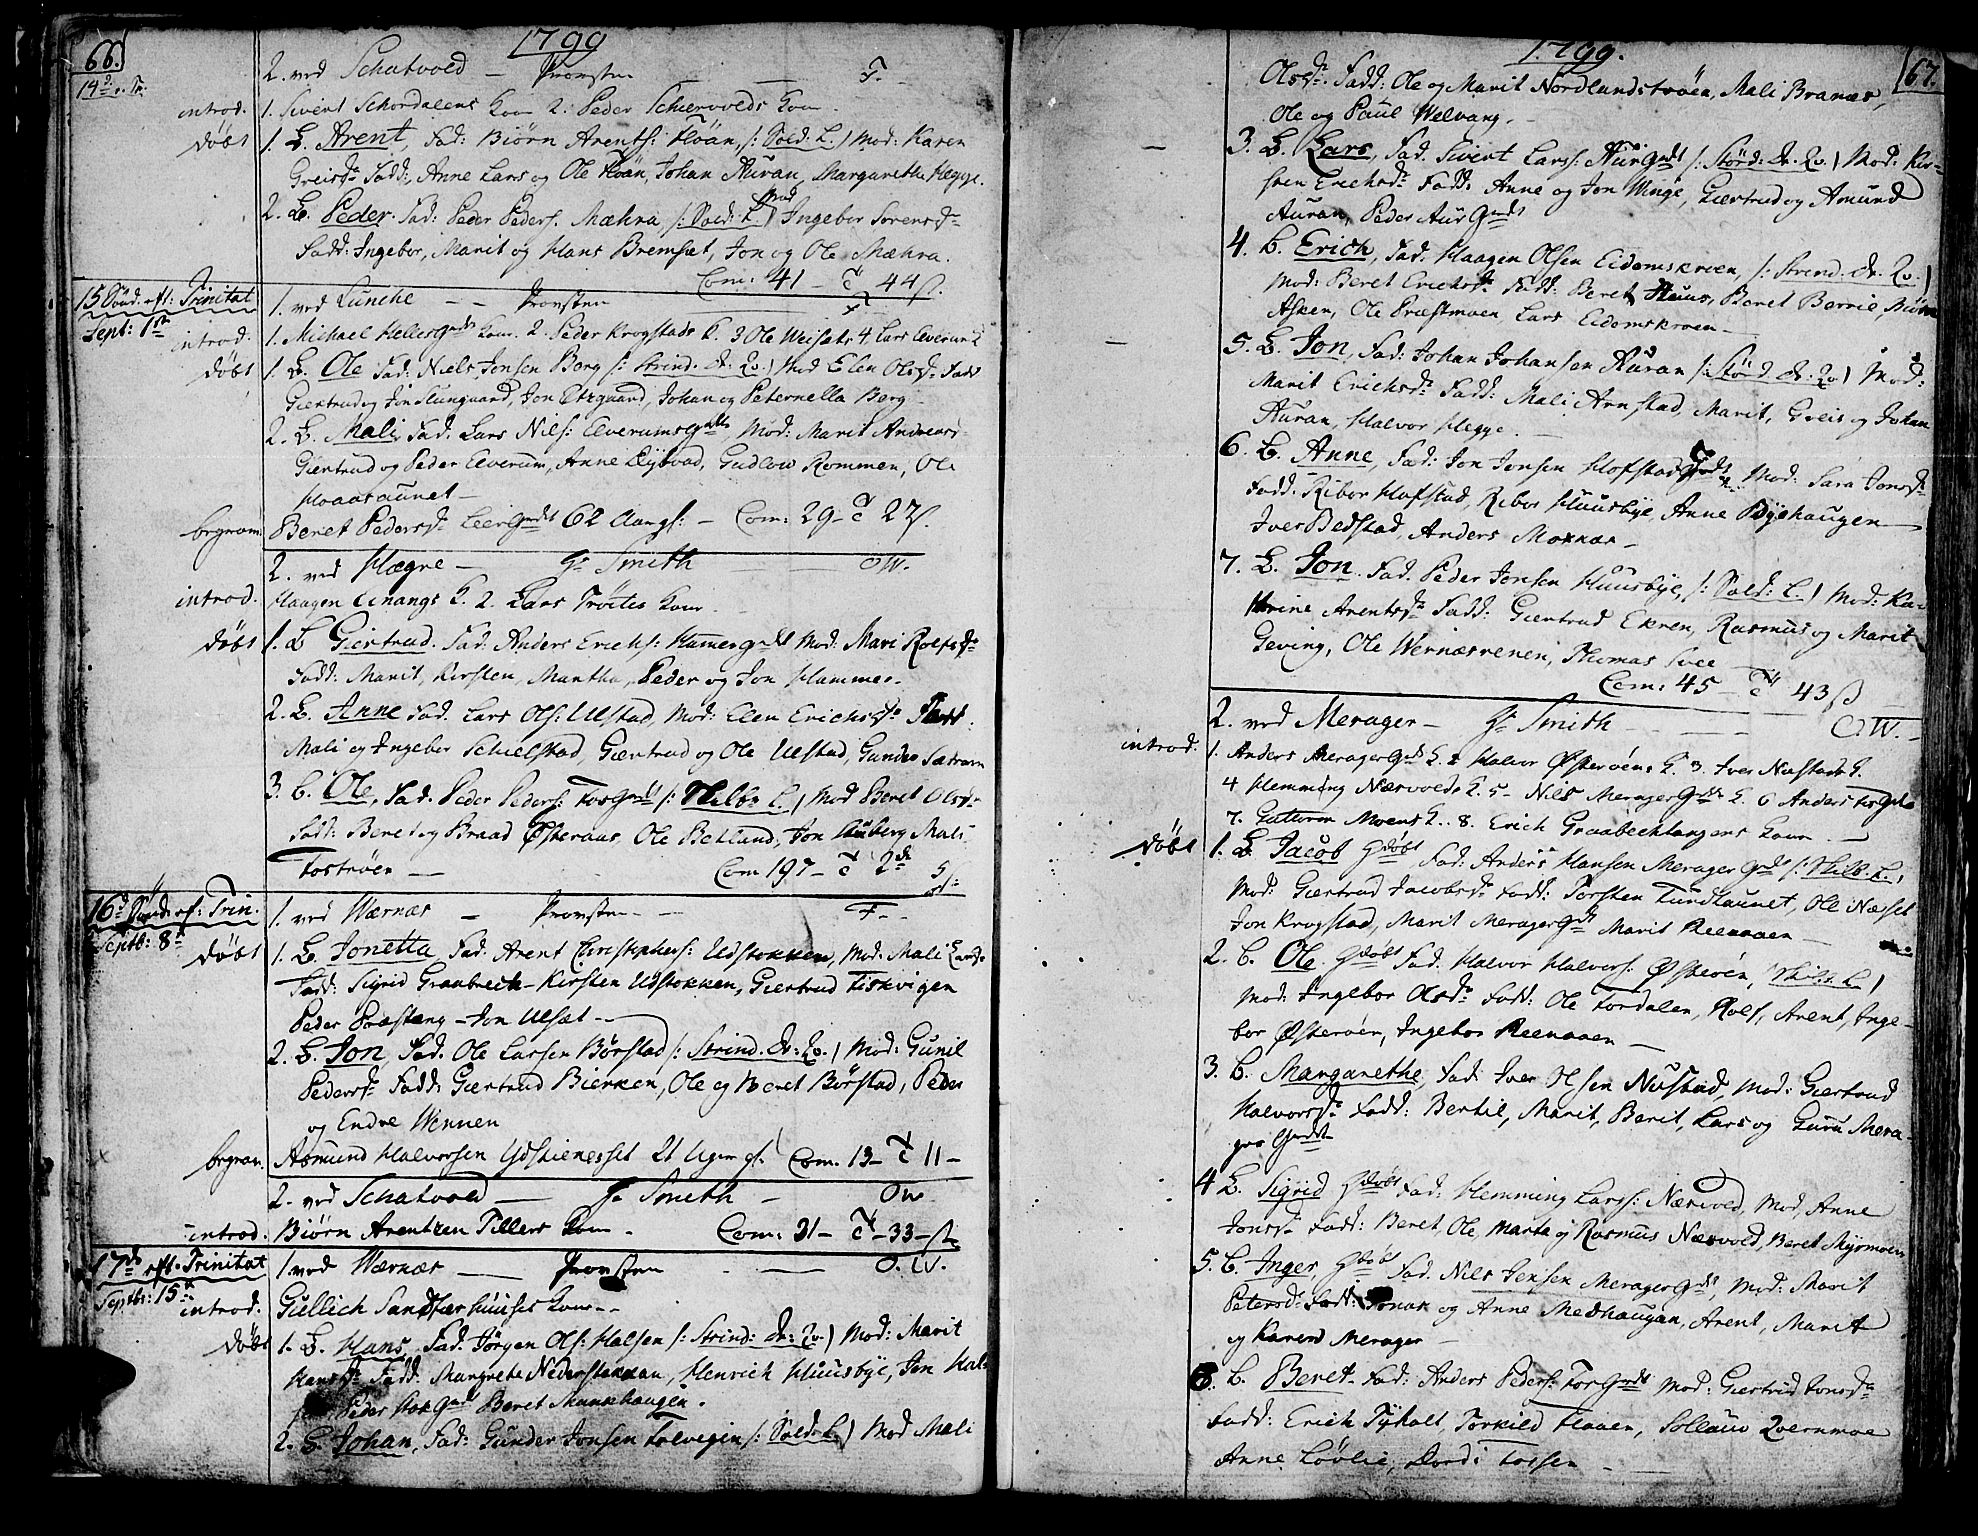 66.
1799
14d. e. Tr.
2. ved Schatvold — Provsten — — F.
introd. 1. Sivert Schordalens Kone 2. Peder Schiervolds Kone
Døbt 1. B. Arent, Fad: Biørn Arentz: Floan, /: Sold: L. / Mod: Karen
Greisdr Fadd: Anne Lars og Ole Floan, Johan Auran, Margarethe Hegge.
2. B. Peder. Fad: Peder Peders. Mæhra /: Sold: L / Mod Ingebor Sørensdr
Fadd: Ingebor, Marit og Hans Bremset, Jon og Ole Mæhra.
Com: 41 — 44 ß.
15 Sønd. eft: Trinitat 1. ved Lunche — — Provsten F
Sept: 1ste introd. 1. Michael Hellesgrdt Kone. 2. Peder Krogstads K. 3 Ole Weisets 4. Lars Elverums K
Døbt 1. B. Ole Fad: Niels Jonsen Berg /: Strind. Dr. Qv. / Mod Elen Olsdr Fadd
Giertrud og Jon Slungaard, Jon Ertzgaard, Johan og Peternella Berg
2. B. Mali. Fad: Lars Nils: Elverumsgrdt, Mod: Marit Andersd:
Giertrud og Peder Elverum, Anne Dybvad, Gudlow Rommen, Ole
Moaaraunet —
begrav. Beret Pedersdr Leergrdt 62 Aar gl: — Com: 29 — 27 ß.
2. ved Hægre — Hr Smith — OW.
introd. Haagen Einangs K. 2. Lars Trøites Kone
Døbt 1. B Giertrud. Fad: Anders Erichs: Hamergrdt Mod: Mari Rolfsdr
Fadd: Marit, Kirsten, Martha, Peder og Jon Hammer.
2. B. Anne Fad: Lars Ols: Ulstad, Mod: Elen Erichsdr Fadd:
Mali og Ingebor Schielstad, Giertrud og Ole Ulstad, Gunder Sætran
3. B. Ole, Fad. Peder Peders: Forgrdt /: Schilb: L. / Mod Beret Olsdr
Fadd: Beret og Braad Østeraas, Ole Betland, Jon Auberg Mali
Fostrøen — Com 197 — 2 d 5 ß:
16d Sønd. ef: Trin. 1. ved Wærnæs — Provsten — F.
Septb: 8de Døbt 1. B. Jonetta, Fad: Arent Christophers: Udstokken, Mod: Mali Larsdr
Fadd: Sigrid Graabrech — Kirsten Udstokken, Giertrud Fiskvigen
Peder Præstang — Jon Ulset —
2. B. Jon, Fad. Ole Larsen Børstad /: Strind. Dr: Qv. / Mod: Gunil
Pedersdr Fadd: Giertrud Bierken, Ole og Beret Børstad, Peder
og Endre Wennen
begrav. Asmund Halvorsen Ydstieneset 21 Uger gl. Com. 13 — 11 —
2. ved Schatvold — Hr Smith — OW.
introd. Biørn Arentzen Tillers Kone — Com: 31 — 33 — ß
17de eft. Trinitat 1. ved Wærnæs — Provsten — O.W.
Septbr: 15de introd. Gullich Sandferhuuses Kone —
Døbt 1. B. Hans. Fad. Jørgen Ols: Halsen /: Strind: Dr: Qv. / Mod: Marit
Hansdr Fadd: Margrete Nederstokkan, Henrich Huusbye, Jon Hal-
Peder Stokgrdt Beret Munkhaugen.
2. B. Johan, Fad: Gunder Jonsen Folvegin /: Sold: L. / Mod Mali
1799.
67.
Olsdr. Fadd: Ole og Marit Nordlandstrøen, Mali Branæs,
Ole og Paul Welvang.
3. B. Lars, Fad. Sivert Larss: Aurgrdt /: Størd: Dr. Qv. / Mod: Kir-
sten Erichsdr Fadd: Anne og Jon Winge, Giertrud og Amund
Auran, Peder Aurgrdt
4. B. Erich, Fad: Haagen Olsen Eidemskroen, /: Strind. Dr. Qv. /
Mod: Beret Erichsdr Fadd: Beret Huus, Beret Berrie, Biørn
Asken, Ole Præstmoen, Lars Eidemskroen —
5. B. Jon, Fad: Johan Johansen Auran /: Størd. Dr. Qv. / Mod:
Marit Erichsdr Fadd: Mali Arnstad, Marit, Greis og Johan
Auran, Halvor Hegge. —
6. B. Anne, Fad: Jon Jensen Hofstadgrdt, Mod: Sara Jonsdr
Fadd. Ribor Hofstad, Ribor Huusbye, Anne Byshaugen
Iver Bedstad, Anders Moxnæs —
7. B. Jon. Fad. Peder Jonsen Huusbye, /: Sold: L. / Mod: Ka-
thrine Arentsdr Fadd: Giertrud Ekren, Rasmus og Marit
Geving, Ole Wernæsvenen, Thomas Svee
Com: 45 — 43 ß
2. ved Merager — Hr Smith — OW.
introd. 1. Anders Meragergrdt K. 2 Halvor Østerøens K. 3. Iver Nustads K.
4 Hemming Næsvolds K. 5 — Nils Meragergrdt K. 6 Anders Forgrdt
7. Guttorm Moens K. 8. Erich Graabechlangens Kone —
Døbt 1. B. Jacob hdøbt, Fad: Anders Hansen Meragergrdt /: Schilb. L. /
Mod: Giertrud Jacobsdr Fadd: Torsten Fundtaunet, Ole Næsset
Jon Krogstad, Marit Meragergrdt Marit Reenaaen —
2. B. Ole. hdøbt Fad. Halvor Halvors: Østerøen, /: Schilb: L. /
Mod: Ingebor Olsdr Fadd: Ole Fordalen, Rolf, Arent, Inge-
bor Østerøen, Ingebor Reenaaen —
3. B. Margarethe, Fad: Iver Olsen Nustad, Mod: Giertrud
Halvorsdr Fadd: Bertil, Marit, Berit, Lars og Guru Mera-
ger grdt
4 B. Sigrid hdøbt Fad: Hemming Larss: Næsvold, Mod, Anne
Jonsdr Fadd: Beret, Ole, Marta og Rasmus Næsvold, Beret Myrmoen
5. B. Inger, hdøbt Fad. Nils Jensen Meragergrdt, Mod: Marit
Petersdr Fadd: Jonas og Anne Medhaugan, Arent, Marit
og Karen Merager —
6. B. Beret — Fad: Anders Peders: Forgrdt Mod: Giertrud Jonsdr
Fadd: Erich Tyholt, Torkild Flaaen, Sollauv Qvernmoe
Anne Løvlie, Dordi Fossen —